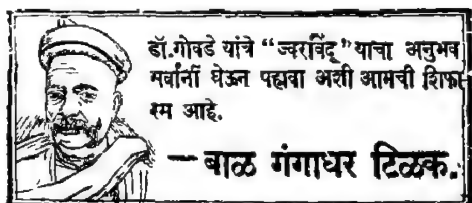 डॉ.गोवडे यांचे “ज्वरबिंदू” याचा अनुभव
सर्वांनीं घेऊन पहावा अशी आमची शिफा-
रस आहे.
— बाळ गंगाधर टिळक.